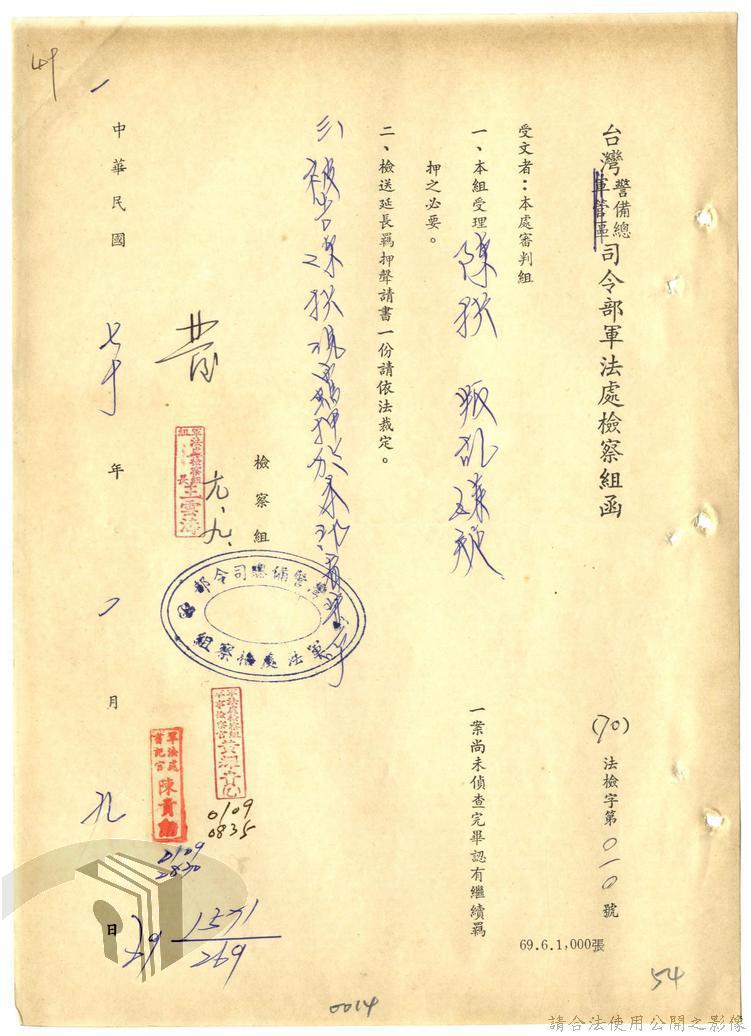 台灣警備總司令部軍法處檢察組函
軍管區
(70) 法檢字第010號
受文者：本處審判組
一、本組受理 陳 叛亂 一案尚未偵查完畢認有繼續羈
押之必要。
二、檢送延長羈押聲請書一份請依法裁定。
三 被告陳 現羈押於本
檢察組
軍法處檢察組組長王雲濤
元.九.
台灣警備總司令部
軍法處檢察組
軍法處檢察組
軍事檢察官
0109
0835
軍法處
書記官
陳貴
0109
0830
中華民國 七十 年 一 月 九 日
1571
269
69.6.1,000張
54
0014
請合法使用公開之影像